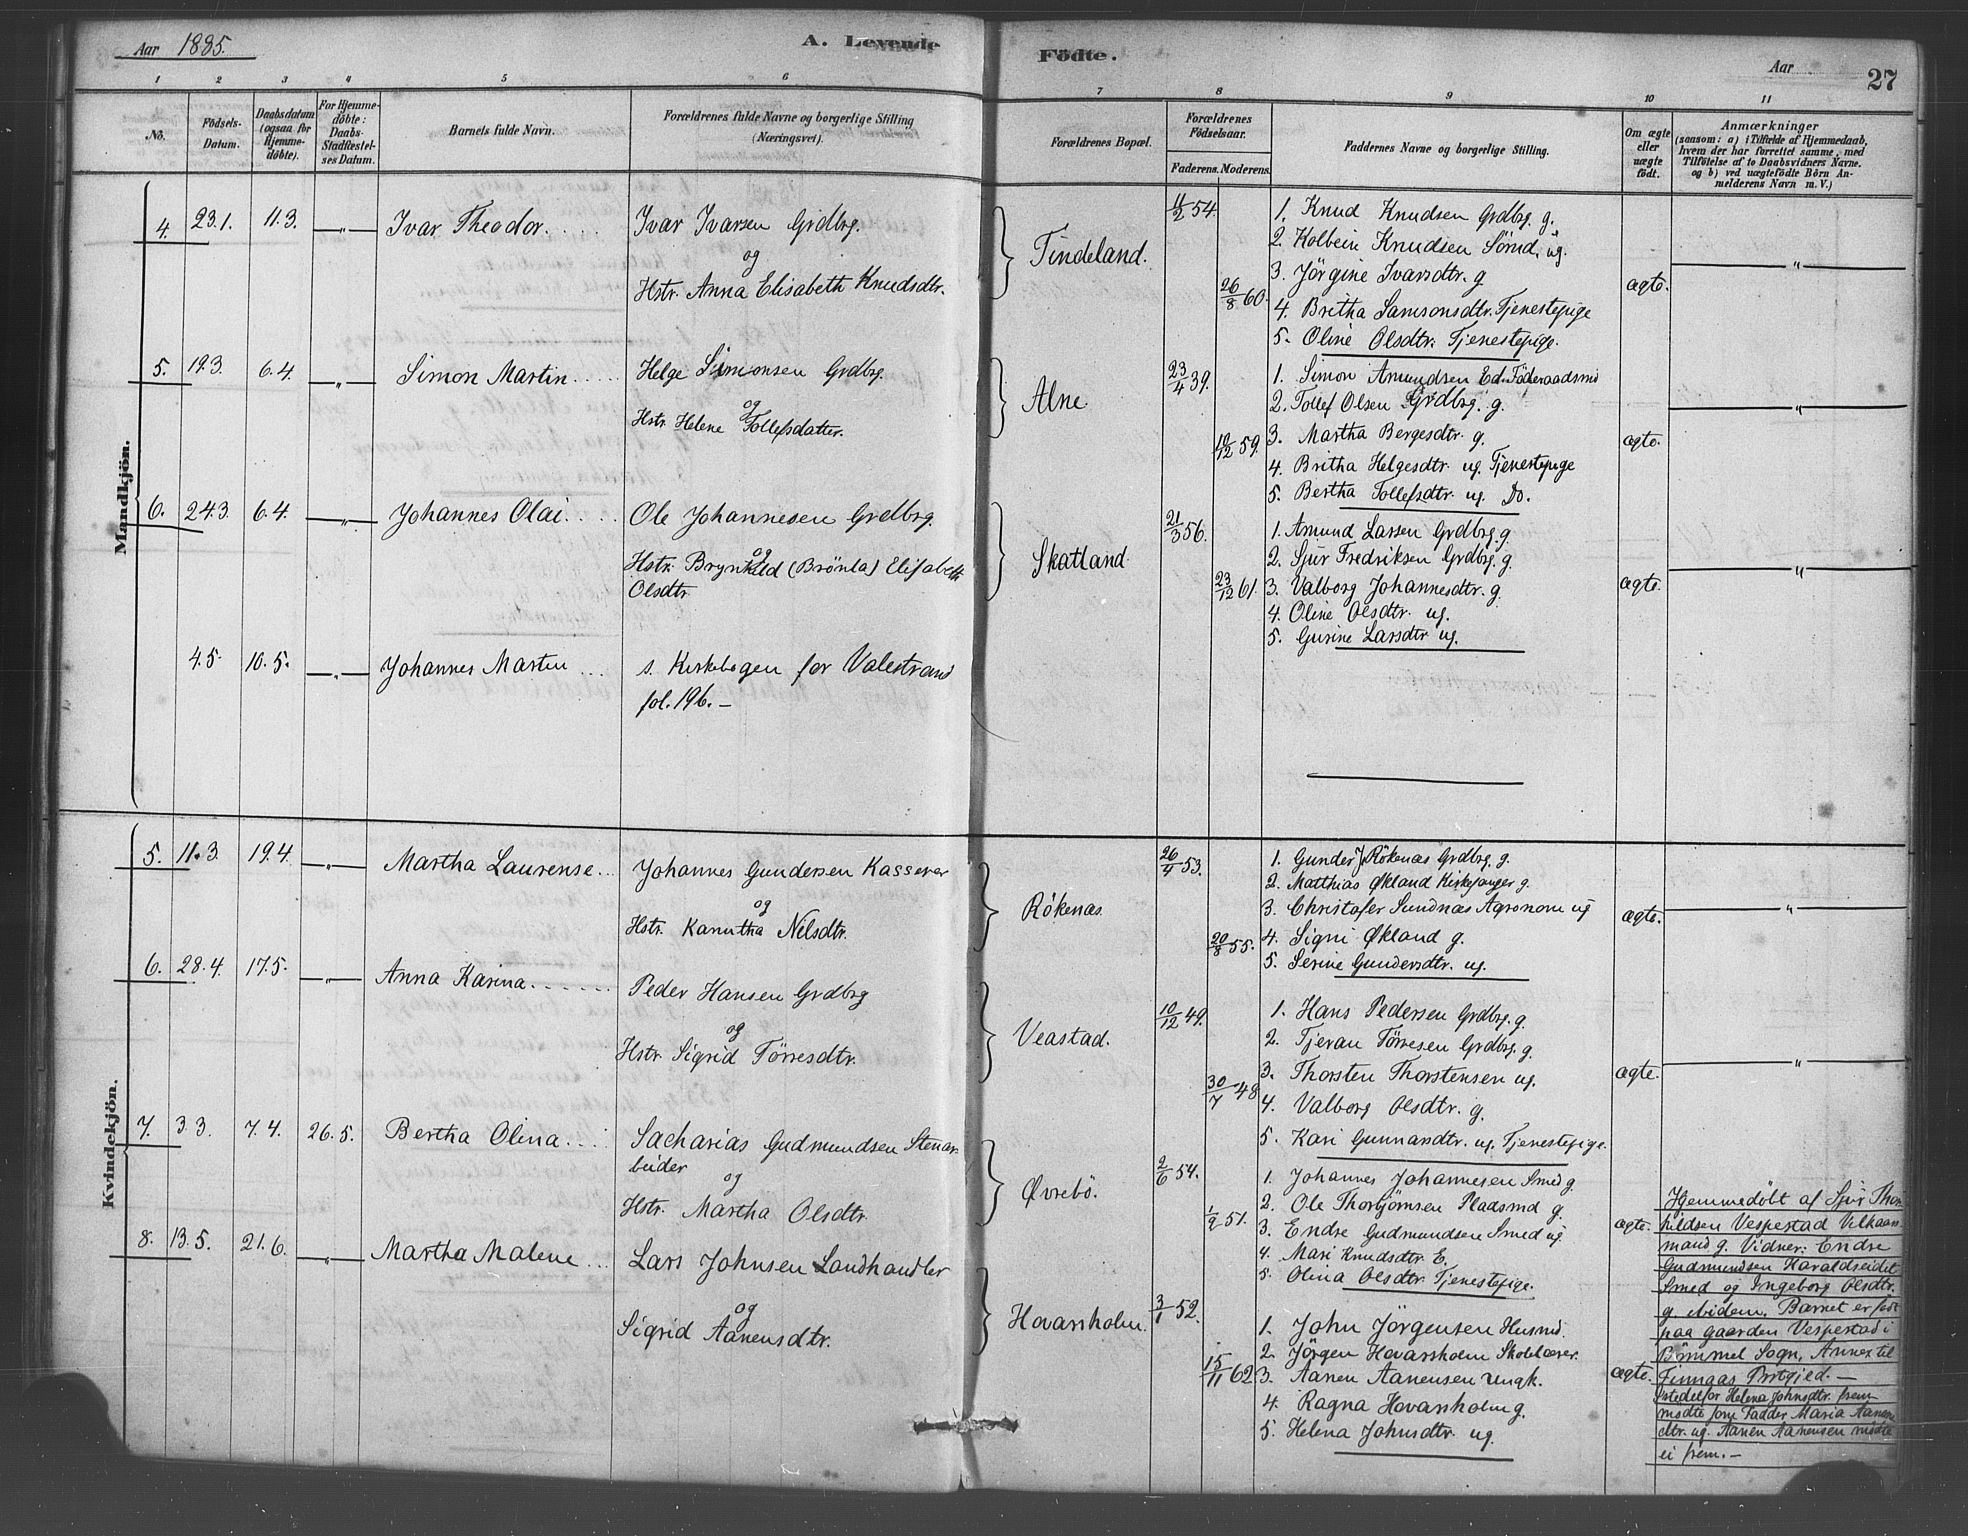 Aar 1885.
A. Levende
Födte.
Aar
27
1 2 3 4 5 6 7 8 9 10 11
No.
Fødsels-Datum.
Daabsdatum (ogsaa for Hjemme-døbte).
For Hjemme-døbte: Daabs-Stadfæstel-ses Datum.
Barnets fulde Navn.
Forældrenes fulde Navne og borgerlige Stilling (Næringsvei).
Forældrenes Bopæl.
Forældrenes Fødselsaar.
Faderens. Moderens.
Faddernes Navne og borgerlige Stilling.
Om ægte eller uægte født.
Anmærkninger
(saasom: a) i Tilfælde af Hjemmedaab, hvem der har forrettet samme, med Tilføielse af to Daabsvidners Navne. og b) ved uægtefødte Børn An-melderens Navn m. V.)
Mandkjön.
4. 23.1. 11.3. —„— Ivar Theodor.
Ivar Ivarsen Grdbrg.
og
Hstr. Anna Elisabeth Knudsdtr.
Tindeland.
11/2 54.
26/8 60.
1. Knud Knudsen Grdbrg. g.
2. Kolbein Knudsen Sömd. ug.
3. Jörgine Ivarsdtr. g
4. Britha Samsonsdtr. Tjenestepige
5. Oline Olsdtr. Tjenestepige.
ægte.
„
5. 19.3. 6.4. —„— Simon Martin
Helge Simonsen Grdbrg.
og
Hstr. Helene Tollefsdatter.
Alne.
23/4 39.
10/12 59.
1. Simon Amundsen Ed. Föderaadsmd
2. Tollef Olsen Grdbrg. g.
3. Martha Bergesdtr. g.
4. Britha Helgesdtr. ug. Tjenestepige
5. Bertha Tollefsdtr. ug. Do.
ægte.
„
6. 24.3. 6.4. —„— Johannes Olai.
Ole Johannesen Grdbrg.
og
Hstr. Brynhild (Brönla) Elisabeth
Olsdtr.
Skatland.
21/3 56.
23/12 61.
1. Amund Larsen Grdbrg. g.
2. Sjur Fredriksen Grdbrg. g.
3. Valborg Johannesdtr. g.
4. Oline Olsdtr. ug.
5. Gurine Larsdtr ug.
ægte.
„
4.5. 10.5. —„— Johannes Martin
s. Kirkebogen for Valestrand
fol. 196. —
Kvindekjön.
5. 11.3. 19.4. —„— Martha Laurense.
Johannes Gundersen Kasserer
og
Hstr. Kanutha Nilsdtr.
Rökenæs.
26/4 53.
20/8 55.
1. Gunder J. Rökenæs Grdbrg. g.
2. Matthias Økland Kirkesanger g.
3. Christofer Sundnæs Agronom ug
4. Signi Økland g.
5. Serine Gundersdtr. ug.
ægte.
„
6. 28.4. 17.5. —„— Anna Karina.
Peder Hansen Grdbrg
og
Hstr. Sigrid Törresdtr.
Veastad.
10/12 49.
30/7 48
1. Hans Pedersen Grdbrg. g.
2. Tjeran Törresen Grdbrg. g.
3. Thorsten Thorstensen ug.
4. Valborg Olsdtr. g.
5. Kari Gunnarsdtr. ug. Tjenestepige.
ægte.
„
7. 3.3. 7.4. 26.5. Bertha Olina.
Sacharias Gudmundsen Stenar-
beider
og
Hstr. Martha Olsdtr.
Øvrebö.
2/6 54.
1/9 51.
1. Johannes Johannesen Smed g.
2. Ole Thorbjørnsen Pladsmd g.
3. Endre Gudmundsen Smed ug
4. Mari Knudsdtr. E.
5. Olina Olsdtr. Tjenestepige.
ægte.
Hjemmedöbt af Sjur Thor-
kildsen Vespestad Vilkaars-
mand g. Vidner: Endre
Gudmundsen Haraldseidet
Smed og Ingeborg Olsdtr.
g. ibidem. Barnet er födt
paa Gaarden Vespestad i
Bömmel Sogn, Annex til
Finnaas Prstgjeld. —
8. 13.5. 21.6. —„— Martha Malene
Lars Johnsen Landhandler
og
Sigrid Aanensdtr.
Hovarsholm.
3/1 52.
15/11 62
1. John Jörgensen Husmd.
2. Jörgen Hovarsholm Skolelærer.
3. Aanen Aanensen Ungk.
4. Ragna Hovarsholm g.
5. Helena Johnsdtr. ug.
ægte.
Istedetfor Helena Johnsdtr. frem-
mödte som Fadder Maria Aanens-
dtr. ug. Aanen Aanensen mödte
ei frem. —